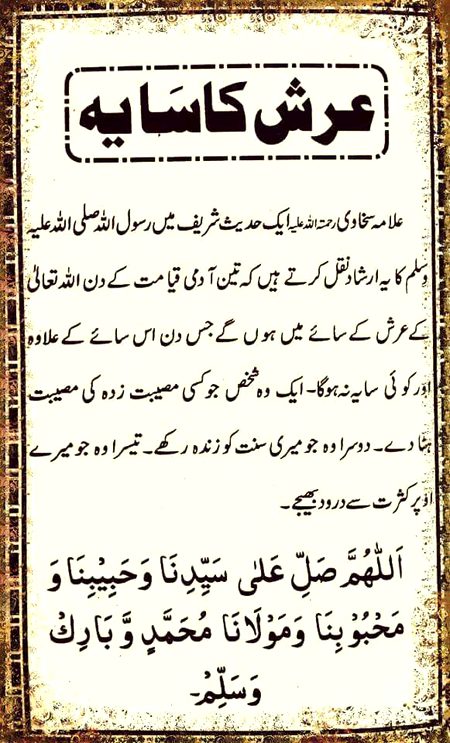 عرش کا سَایہ
علامہ سخاوی رحمۃ اللہ علیہ ایک حدیث شریف میں رسول اللہ صلی اللہ علیہ
وسلم کا یہ ارشاد نقل کرتے ہیں کہ تین آدمی قیامت کے دن اللہ تعالیٰ
کے عرش کے سائے میں ہوں گے جس دن اس سائے کے علاوہ
اور کوئی سایہ نہ ہوگا۔ ایک وہ شخص جو کسی مصیبت زدہ کی مصیبت
ہٹا دے۔ دوسرا وہ جو میری سنت کو زندہ رکھے۔ تیسرا وہ جو میرے
اوپر کثرت سے درود بھیجے۔
اَللّٰهُمَّ صَلِّ عَلٰى سَيِّدِنَا وَحَبِيْبِنَا وَ
مَحْبُوْبِنَا وَمَوْلَانَا مُحَمَّدٍ وَّبَارِكْ
وَسَلِّمْ۔